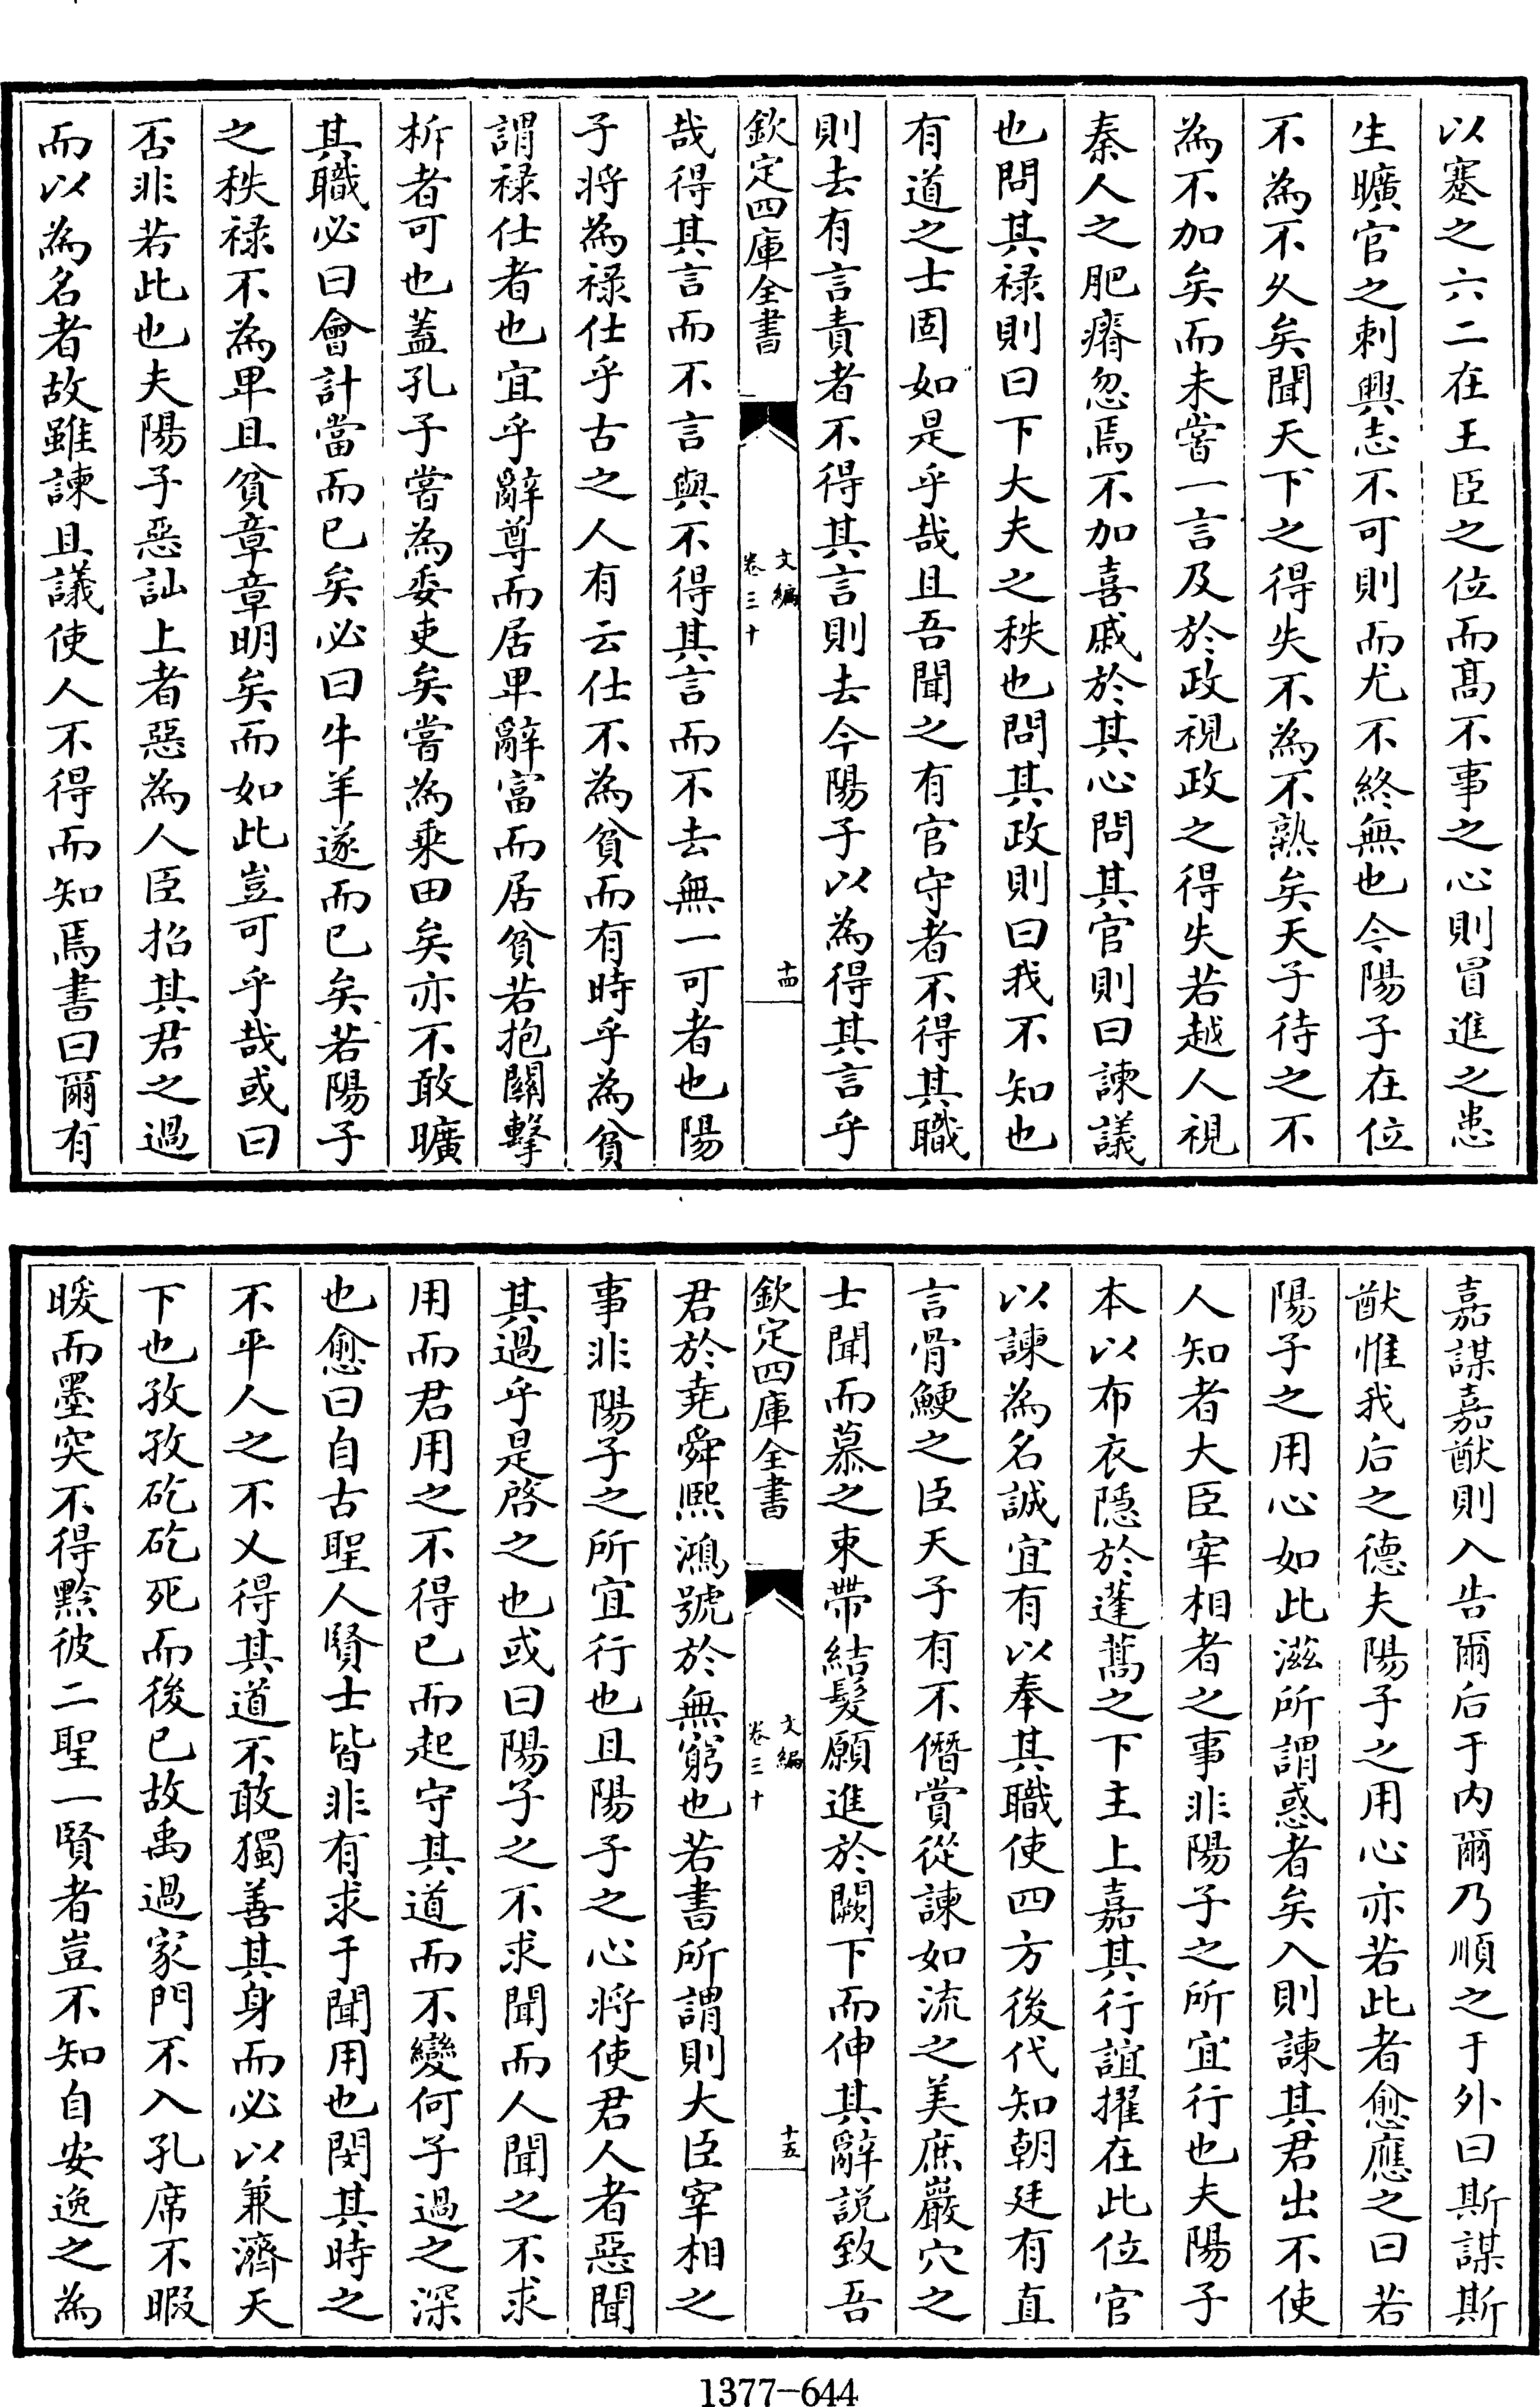 以蹇之六二在王臣之位而髙不事之心則冒進之患
生曠官之刺興志不可則而尤不終無也今陽子在位
不為不久矣聞天下之得失不為不熟矣天子待之不
為不加矣而未嘗一言及於政視政之得失若越人視
秦人之肥瘠忽焉不加喜戚於其心問其官則曰諫議
也問其禄則曰下大夫之秩也問其政則曰我不知也
有道之士固如是乎哉且吾聞之有官守者不得其職
則去有言責者不得其言則去今陽子以為得其言乎
欽定四庫全書
文編
卷三十
十四
哉得其言而不言與不得其言而不去無一可者也陽
子將為禄仕乎古之人有云仕不為貧而有時乎為貧
謂禄仕者也宜乎辭尊而居卑辭富而居貧若抱關擊
柝者可也蓋孔子嘗為委吏矣嘗為乗田矣亦不敢曠
其職必曰會計當而已矣必曰牛羊遂而已矣若陽子
之秩禄不為卑且貧章章明矣而如此豈可乎哉或曰
否非若此也夫陽子惡訕上者惡為人臣招其君之過
而以為名者故雖諫且議使人不得而知焉書曰爾有
嘉謀嘉猷則入告爾后于内爾乃順之于外曰斯謀斯
猷惟我后之德夫陽子之用心亦若此者愈應之曰若
陽子之用心如此滋所謂惑者矣入則諫其君出不使
人知者大臣宰相者之事非陽子之所宜行也夫陽子
本以布衣隱於蓬蒿之下主上嘉其行誼擢在此位官
以諫為名誠宜有以奉其職使四方後代知朝廷有直
言骨鯁之臣天子有不僭賞從諫如流之美庶巖穴之
士聞而慕之束帶結髮願進於闕下而伸其辭説致吾
欽定四庫全書
文編
卷三十
十五
君於尭舜熙鴻號於無窮也若書所謂則大臣宰相之
事非陽子之所宜行也且陽子之心將使君人者惡聞
其過乎是啓之也或曰陽子之不求聞而人聞之不求
用而君用之不得已而起守其道而不變何子過之深
也愈曰自古聖人賢士皆非有求于聞用也閔其時之
不平人之不乂得其道不敢獨善其身而必以兼濟天
下也孜孜矻矻死而後已故禹過家門不入孔席不暇
暖而墨突不得黔彼二聖一賢者豈不知自安逸之為
1377-644